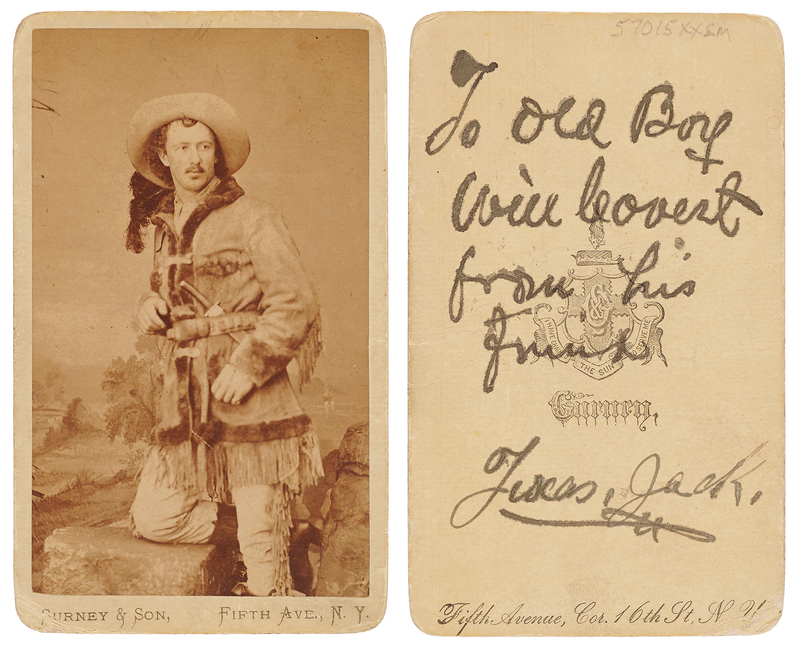 GURNEY & SON, FIFTH AVE., N. Y.
57015XXSM
To Old Boy
Will Covert
from his
Friend
THE SUN
Gurney,
Texas, Jack.
Fifth Avenue, Cor. 16th St, N. Y.